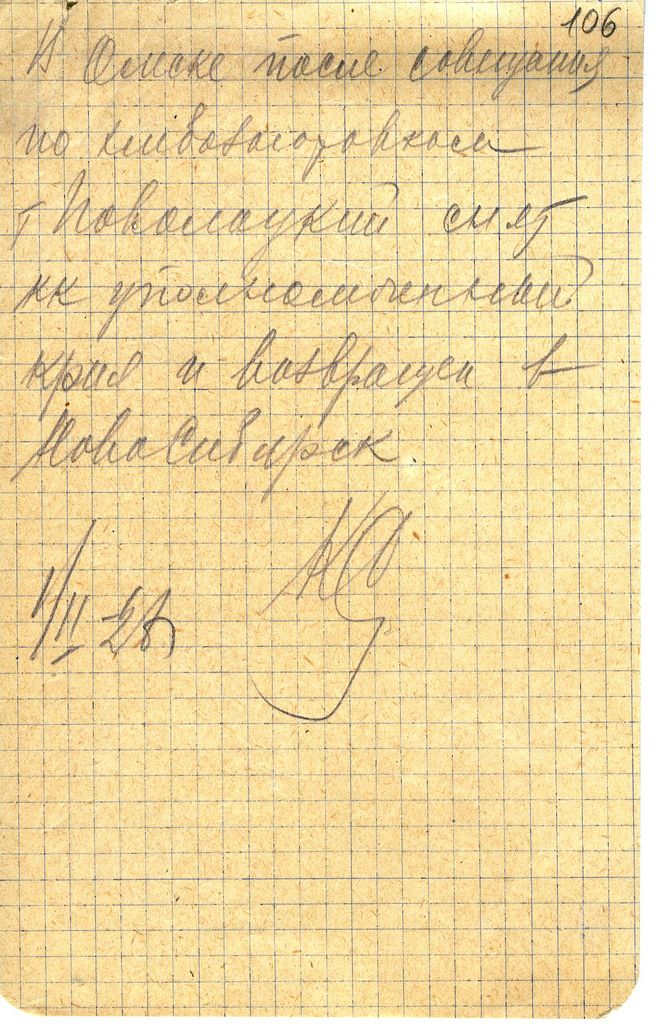 106
В Омске после совещания
по хлебозаготовкам
т Поволоцкий снят
кк уполномоченный
края и возвращен в
НовоСибирск
1/II 28г